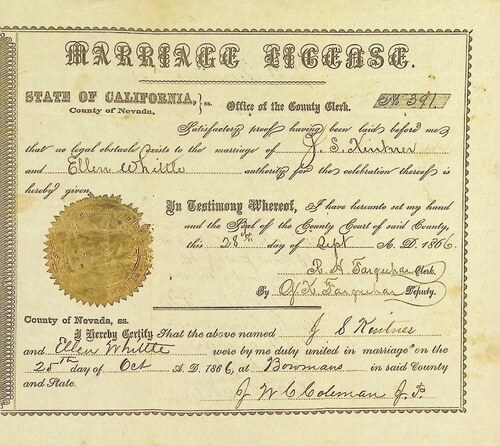 MARRIAGE LICENSE.
STATE OF CALIFORNIA, } ss. Office of the County Clerk. No 391
County of Nevada.
Satisfactory proof having been laid before me
that no legal obstacle exists to the marriage of J. S. Kentner
and Ellen Whittle authority for the celebration thereof is
hereby given.
In Testimony Whereof, I have hereunto set my hand
and the Seal of the County Court of said County,
this 28th day of Sept A. D. 1866.
R. H. Farquhar Clerk,
By Farquhar Deputy.
County of Nevada, ss.
I Hereby Certify That the above named J S Kentner
and Ellen Whittle were by me duly united in marriage on the
25th day of Oct A. D. 1866, at Bowmans in said County
and State.
J W C Coleman J. P.